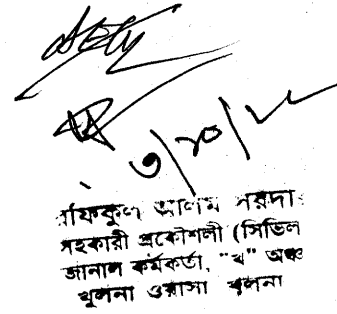 ৩/১০/২২
রফিকুল আলম সরদার
সহকারী প্রকৌশলী (সিভিল
জোনাল কর্মকর্তা, "খ" অঞ্চ
খুলনা ওয়াসা খুলনা